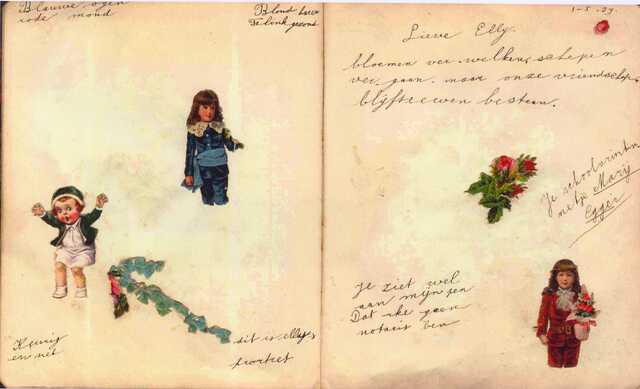 Blauwe ogen
rode mond
Blond haar
Flink gezond
Keurig
en net
dit is elly's
portret
Lieve Elly.
bloemen ver.welken, schepen
ver.gaan. maar onze vriendschap
blijft eewen bestaan.
Je schoolvriendin
netje Mary
Egger
Je ziet wel
aan mijn pen
Dat ike geen
notaris ben